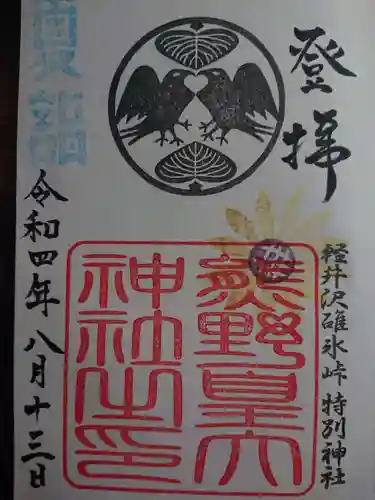 登拝
軽井沢碓氷峠 特別神社
熊野皇大
神社之印
令和四年 八月十三日